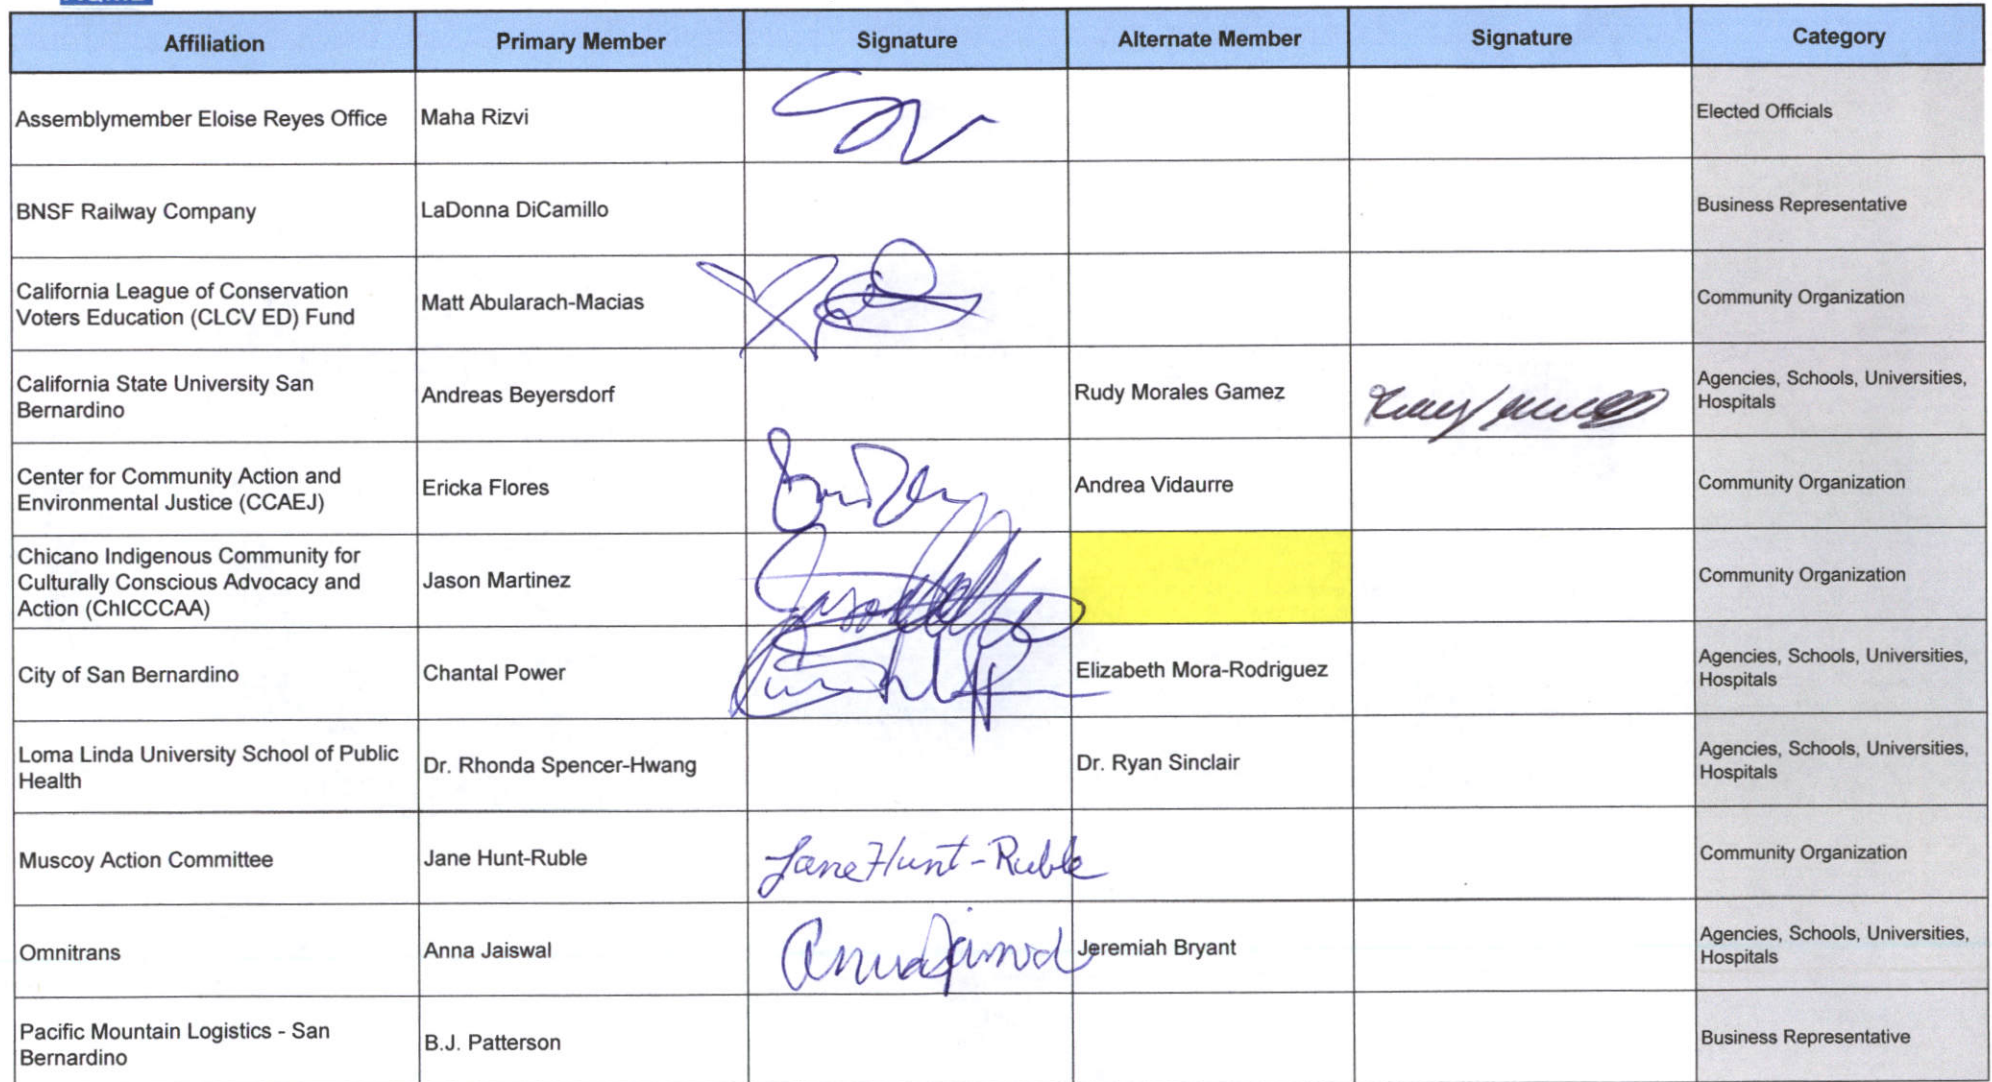 Affiliation Primary Member Signature Alternate Member Signature Category
Assemblymember Eloise Reyes Office Maha Rizvi Elected Officials
BNSF Railway Company LaDonna DiCamillo Business Representative
California League of Conservation
Voters Education (CLCV ED) Fund
Matt Abularach-Macias Community Organization
California State University San
Bernardino
Andreas Beyersdorf Rudy Morales Gamez
Agencies, Schools, Universities,
Hospitals
Center for Community Action and
Environmental Justice (CCAEJ)
Ericka Flores Andrea Vidaurre Community Organization
Chicano Indigenous Community for
Culturally Conscious Advocacy and
Action (ChICCCAA)
Jason Martinez Jason Community Organization
City of San Bernardino Chantal Power Elizabeth Mora-Rodriguez
Agencies, Schools, Universities,
Hospitals
Loma Linda University School of Public
Health
Dr. Rhonda Spencer-Hwang Dr. Ryan Sinclair
Agencies, Schools, Universities,
Hospitals
Muscoy Action Committee Jane Hunt-Ruble Jane Hunt-Ruble Community Organization
Omnitrans Anna Jaiswal Anna Jaiswal Jeremiah Bryant
Agencies, Schools, Universities,
Hospitals
Pacific Mountain Logistics - San
Bernardino
B.J. Patterson Business Representative